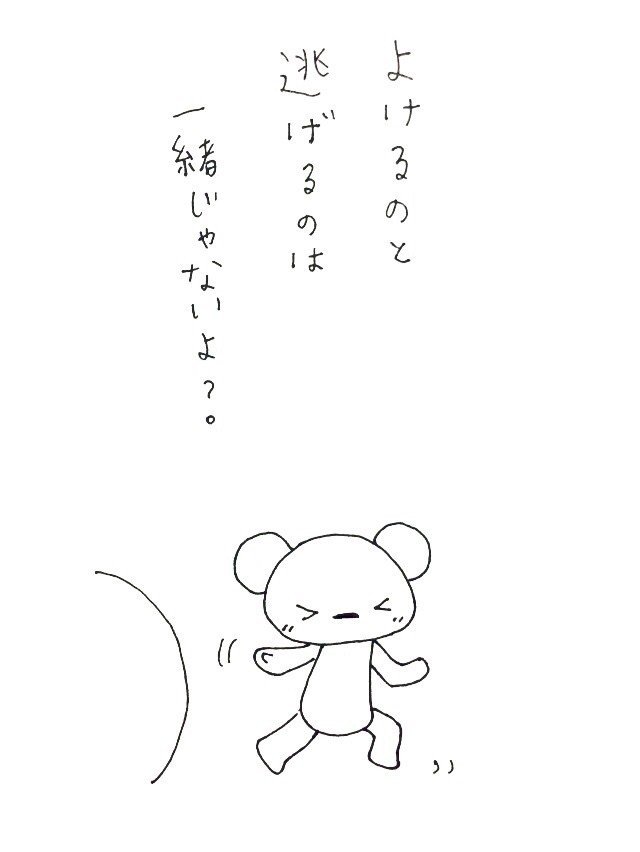 よけるのと
逃げるのは
一緒じゃないよ?。